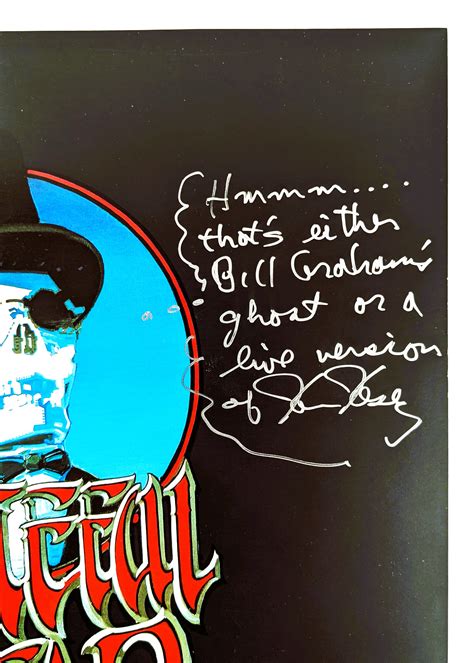 Hmmm....
that's either
Bill Graham's
ghost or a
live version
of Ken Kesey
TEFUL
EAD